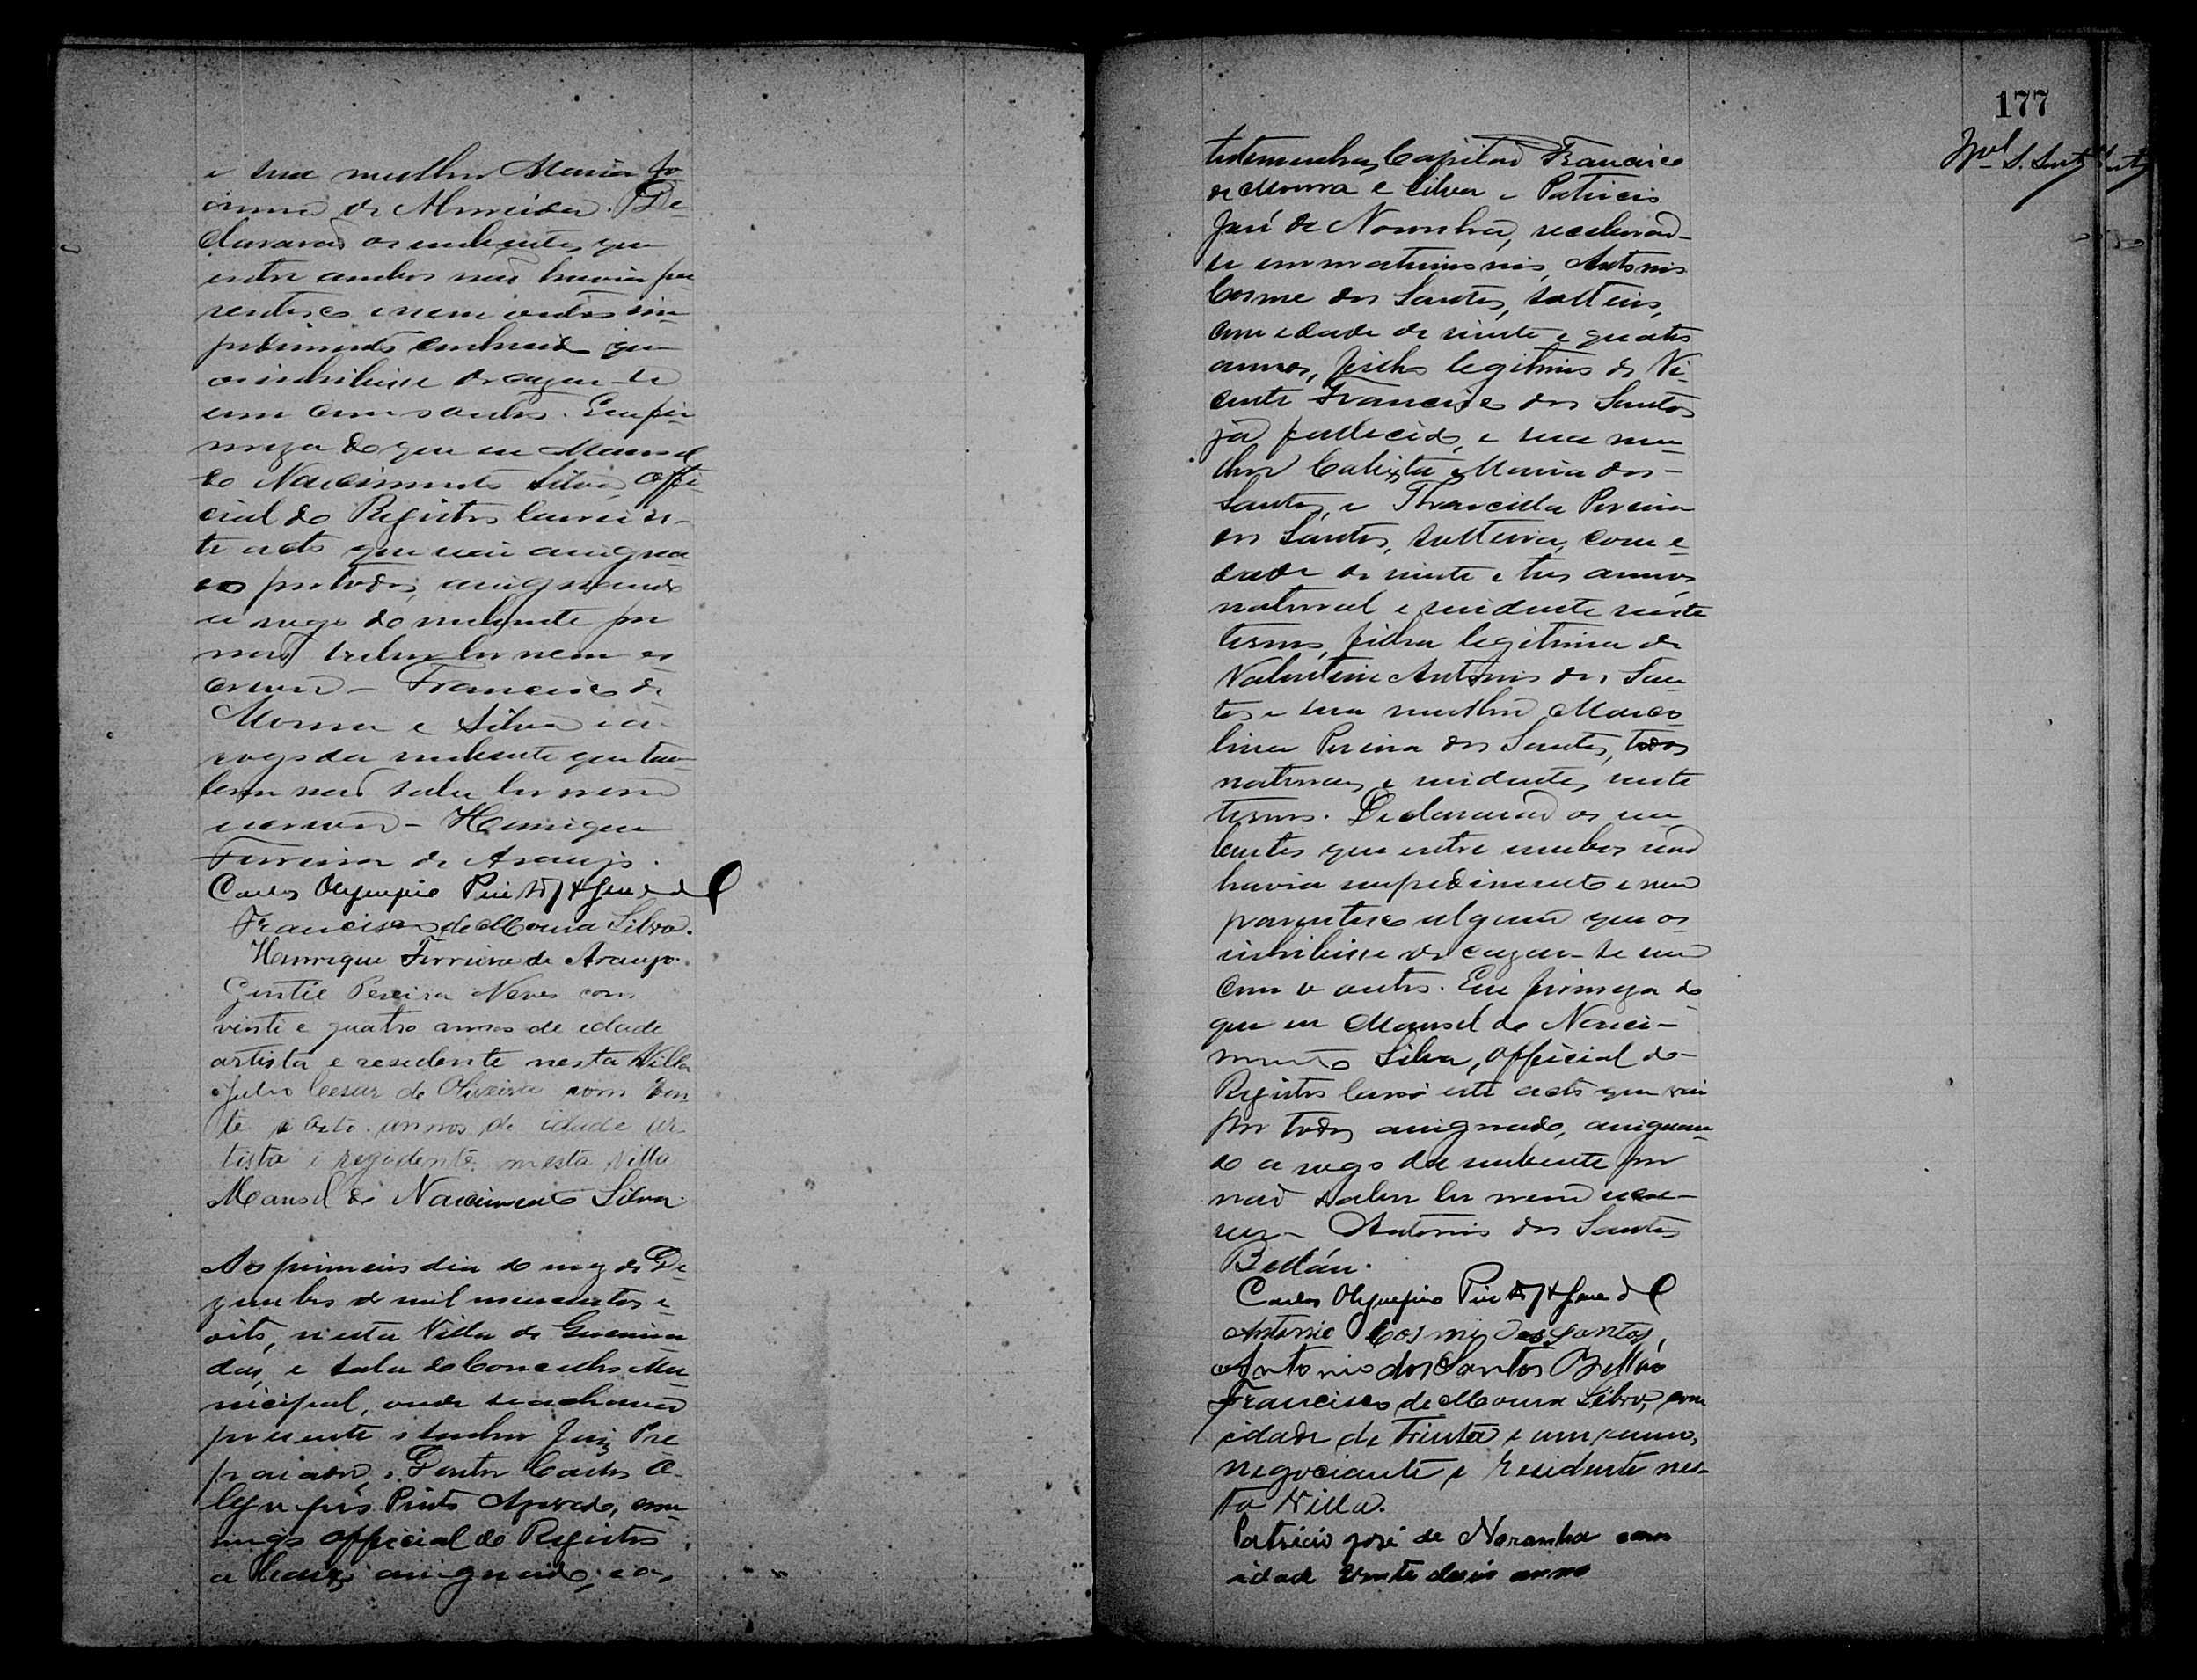 e sua mulher Maria Jo
anna de Almeida. De-
clararaõ os nubentes, que
entre ambos naõ havia pa
rentesco e nem outro im-
pedimento conhecido que
os inhibisse de cazar-se
um com o outro. Em fir-
meza do que eu Manoel
do Nascimento Silva, offi-
cial do Registro lavrei es-
te acto que vai assigna
do por todos, assignando
a rogo do nubente por
naõ saber ler nem es
crever - Francisco de
Moura e Silva e a
rogo da nubente que tam
bem naõ sabe ler nem
escrever - Henrique
Ferreira de Araujo.
Carlos Olympio Pinto
Francisco de Moura Silva.
Henrique Ferreira de Araujo.
Gentil Pereira Neves com
vinti e quatro annos de edade
artista e residente nesta Villa
Julio Cesar de Oliveira com vin
te e oito annos de idade ar
tista e rezidente nesta villa
Manoel do Nascimento Silva
Ao primeiro dia do mez de De
zembro de mil novecentos e
oito, nesta Villa de
e sala do Concelho Mu
nicipal, onde se achavaõ
presente o senhor Juiz Pre
parador, Doutor Carlos O-
lympio Pinto Azevedo, com-
migo official do Registro
assignado, e as
177
testemunhas, Capitaõ Francisco
de Moura e Silva e Patricio
José de Noronha, receberaõ-
se em matrimonio, Antonio
Cosme dos Santos, solteiro,
com edade de vinte e quatro
annos, filho legitimo de Vi-
cente Francisco dos Santos
já fallecido, e sua mu
lher Calixta Maria dos-
Santos, e Tharcilla Pereira
dos Santos, solteira, com e-
dade de vinte e tres annos
natural e residente neste
termo, filha legitima de
Valentim Antonio dos San
tos e sua mulher Marco
lina Pereira dos Santos, todos
naturaes e residentes neste
termo. Declararaõ os nu
bentes que entre ambos naõ
havia impedimento e nem
parentesco algum que os
inhibisse de cazar-se um
com o outro. Em firmeza do
que eu Manoel do Nasci-
mento Silva, official do-
Registro lavrei este acto que vai
por todos assignado, assignan
do a rogo da nubente por
naõ saber ler nem escre-
ver - Antonio dos Santos
Bellaú.
Carlos Olympio Pinto
Antonio Cosme dos Santos,
Antonio dos Santos
Francisco de Moura Silva, com
edade de Trinta e um annos,
negociante e Residente nes-
ta Villa.
Patricio José de Noronha com
idade vinte dois anno